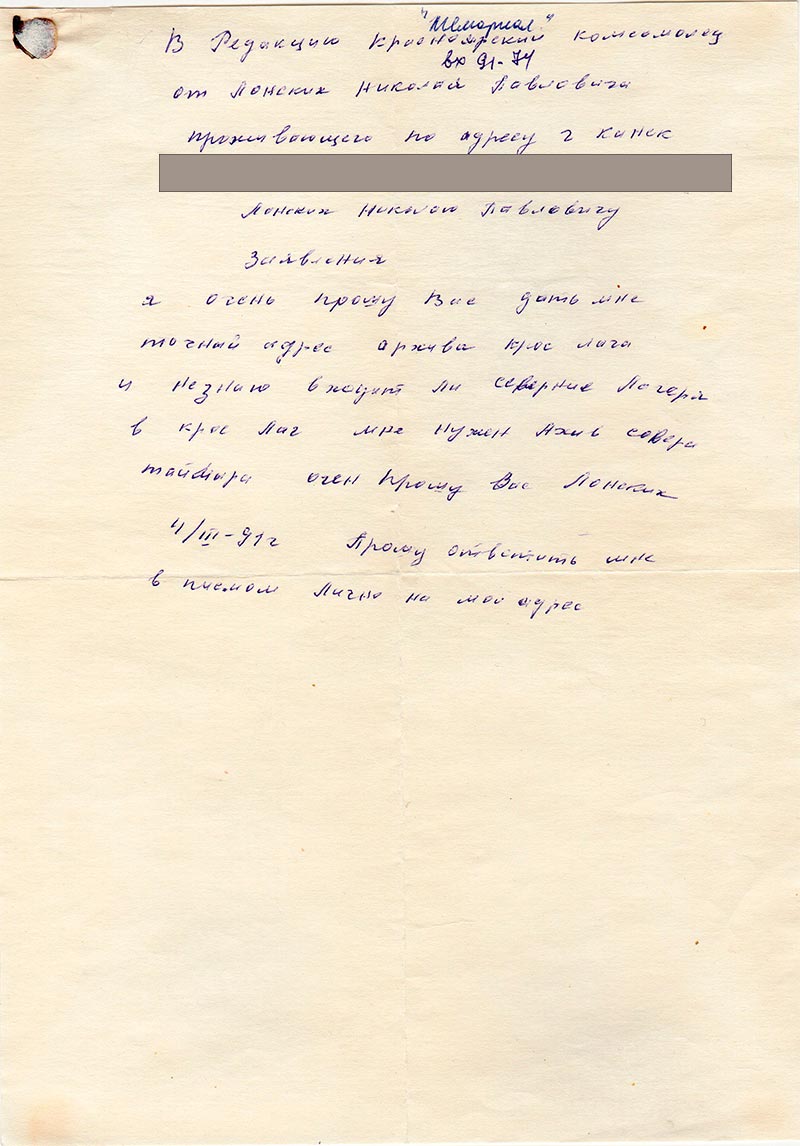 "Мемориал"
В Редакцию Красноярский комсомолец
вх 91-74
от Лонских Николая Павловича
проживающего по адресу г канск
Лонских Николаю Павловичу
Заявления
я очень прошу Вас дать мне
точный адрес архива крас лага
и незнаю входит ли северние Лагеря
в крас Лаг мне нужен Ахив севера
таймыра очен прошу Вас Лонских
4/III-91г Прошу ответить мне
в писмом Лично на мой адрес